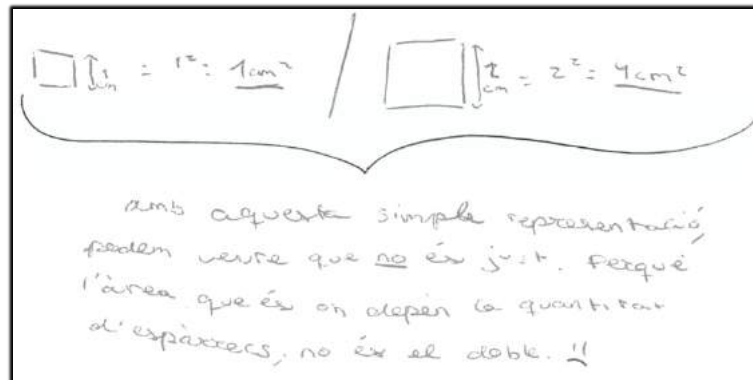 1 cm = 1² = 1cm² / 2 cm = 2² = 4cm²
amb aquesta simple representació,
podem veure que no és just. Perquè
l'àrea que és on depèn la quantitat
d'espàrrecs, no és el doble. !!